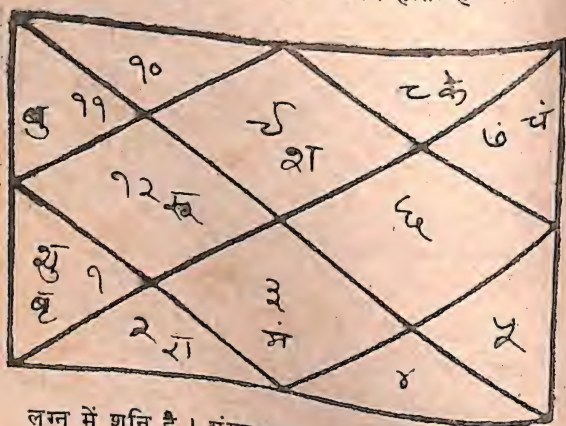 १०
बु ११
९
श
८ के
७ चं
१२ सू
६
शु
बृ १
२ रा
३
मं
४
५
लग्न में शनि है ।